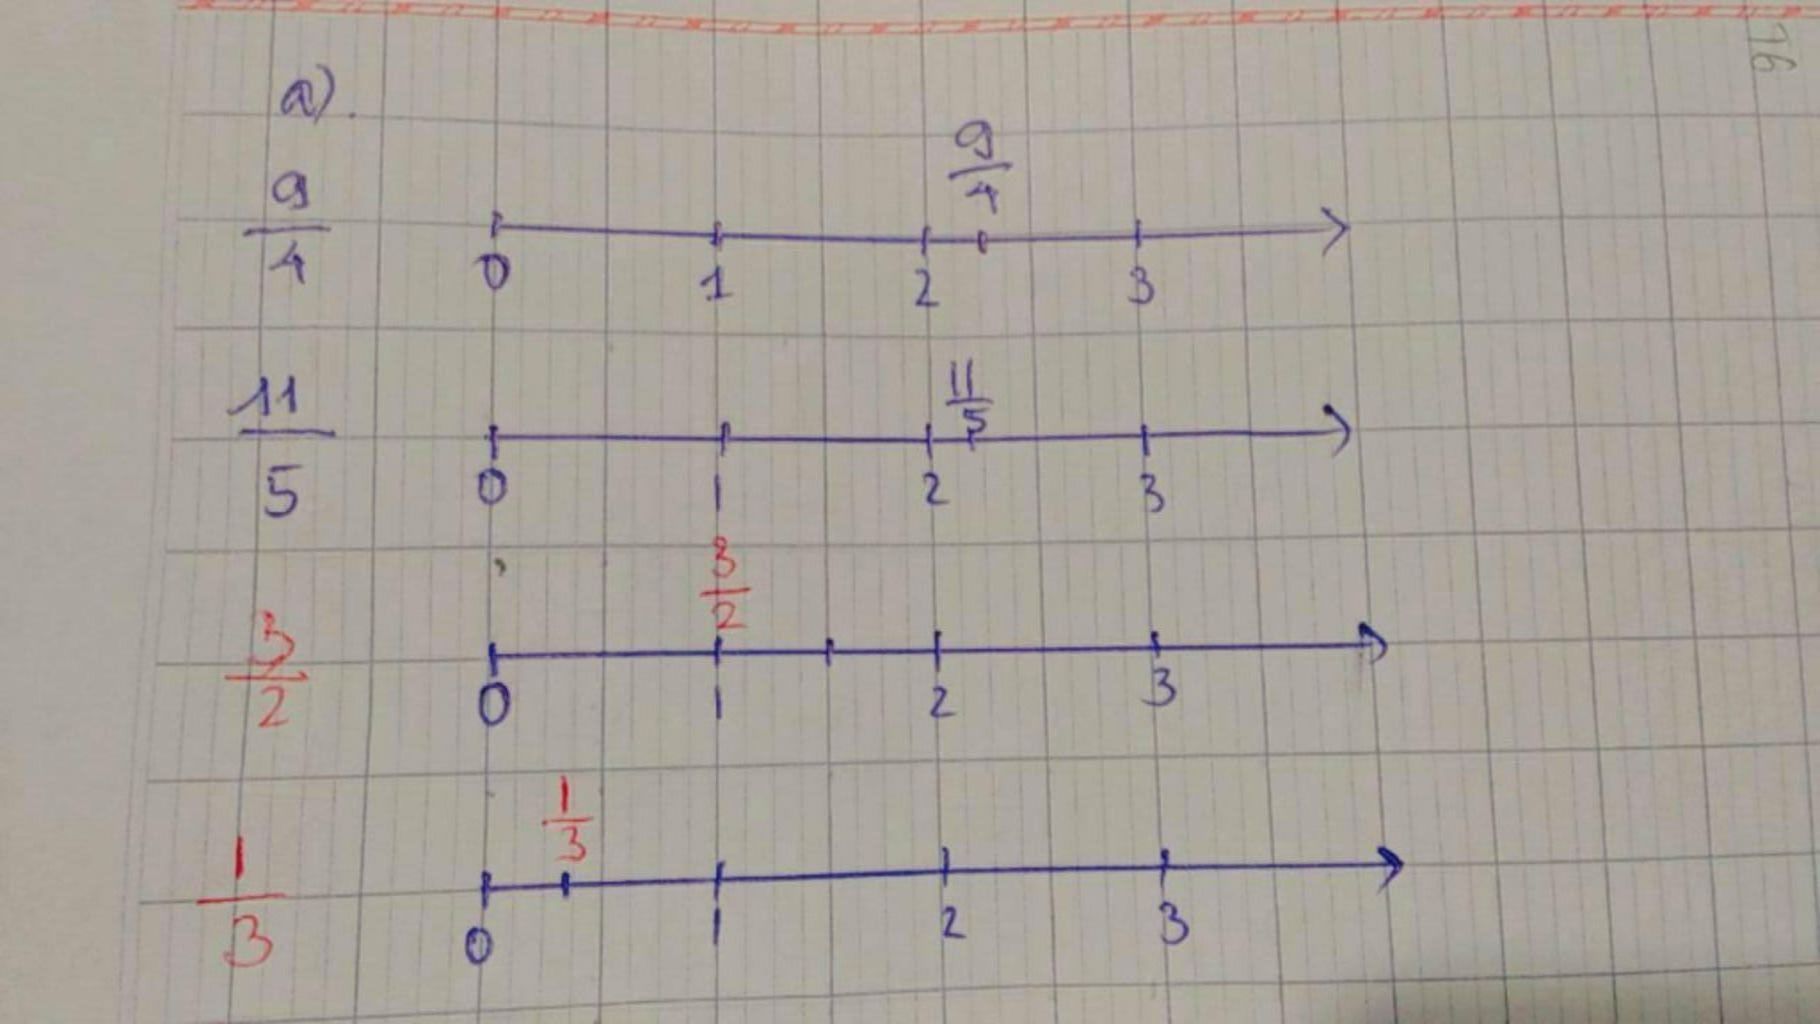 a).
9/4
9/4
0 1 2 3
11/5
11/5
0 1 2 3
3/2
3/2
0 1 2 3
1/3
1/3
0 1 2 3